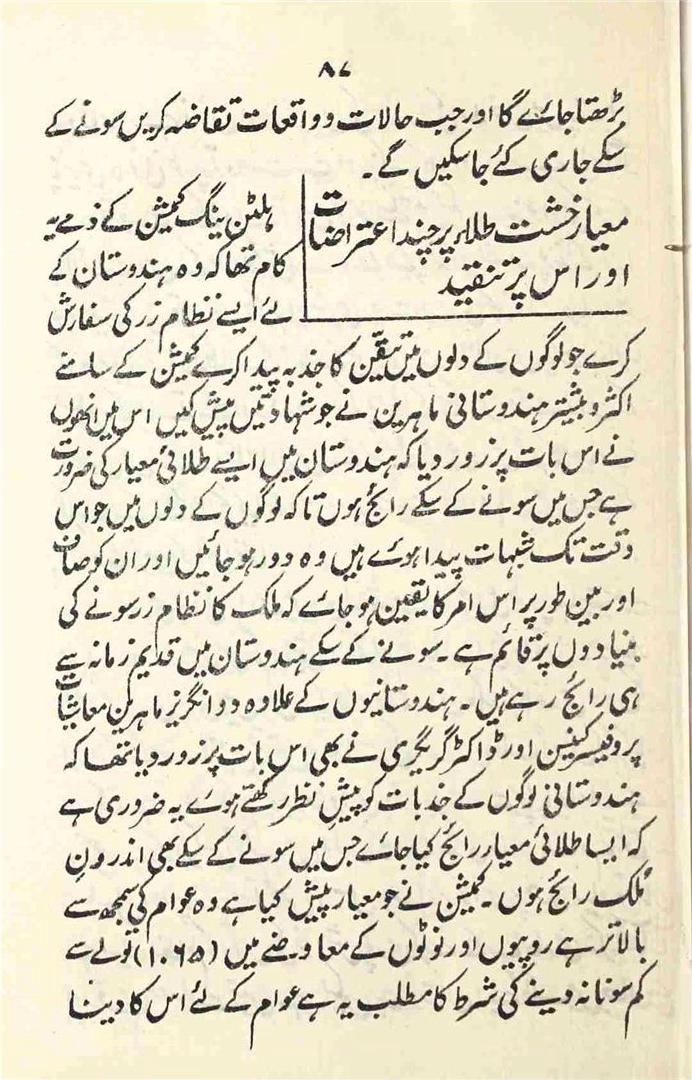 ۸۷
بڑھتا جائے گا اور جب حالات و واقعات تقاضہ کریں سونے کے
سکے جاری کئے جا سکیں گے۔
معیار خشت طلاء پر چند اعتراضات
اور اس پر تنقید
ہلٹن ینگ کمیشن کے ذمے یہ
کام تھا کہ وہ ہندوستان کے
لئے ایسے نظام زر کی سفارش
کرے جو لوگوں کے دلوں میں یقین کا جذبہ پیدا کرے کمیشن کے سامنے
اکثر و بیشتر ہندوستانی ماہرین نے جو شہادتیں پیش کیں اس میں انھوں
نے اس بات پر زور دیا کہ ہندوستان میں ایسے طلائی معیار کی ضرورت
ہے جس میں سونے کے سکے رائج ہوں تاکہ لوگوں کے دلوں میں جو اس
وقت تک شبہات پیدا ہوئے ہیں وہ دور ہو جائیں اور ان کو صاف
اور بین طور پر اس امر کا یقین ہو جائے کہ ملک کا نظام زر سونے کی
بنیادوں پر قائم ہے۔ سونے کے سکے ہندوستان میں قدیم زمانہ سے
ہی رائج رہے ہیں۔ ہندوستانیوں کے علاوہ دو انگریز ماہرین معاشیات
پروفیسر کینن اور ڈاکٹر گریگری نے بھی اس بات پر زور دیا تھا کہ
ہندوستانی لوگوں کے جذبات کو پیشِ نظر رکھتے ہوئے یہ ضروری ہے
کہ ایسا طلائی معیار رائج کیا جائے جس میں سونے کے سکے بھی اندرونِ
مُلک رائج ہوں۔ کمیشن نے جو معیار پیش کیا ہے وہ عوام کی سمجھ سے
بالاتر ہے روپیوں اور نوٹوں کے معاوضے میں (۱۰۶۵) تولے سے
کم سونا نہ دینے کی شرط کا مطلب یہ ہے عوام کے لئے اس کا دینا